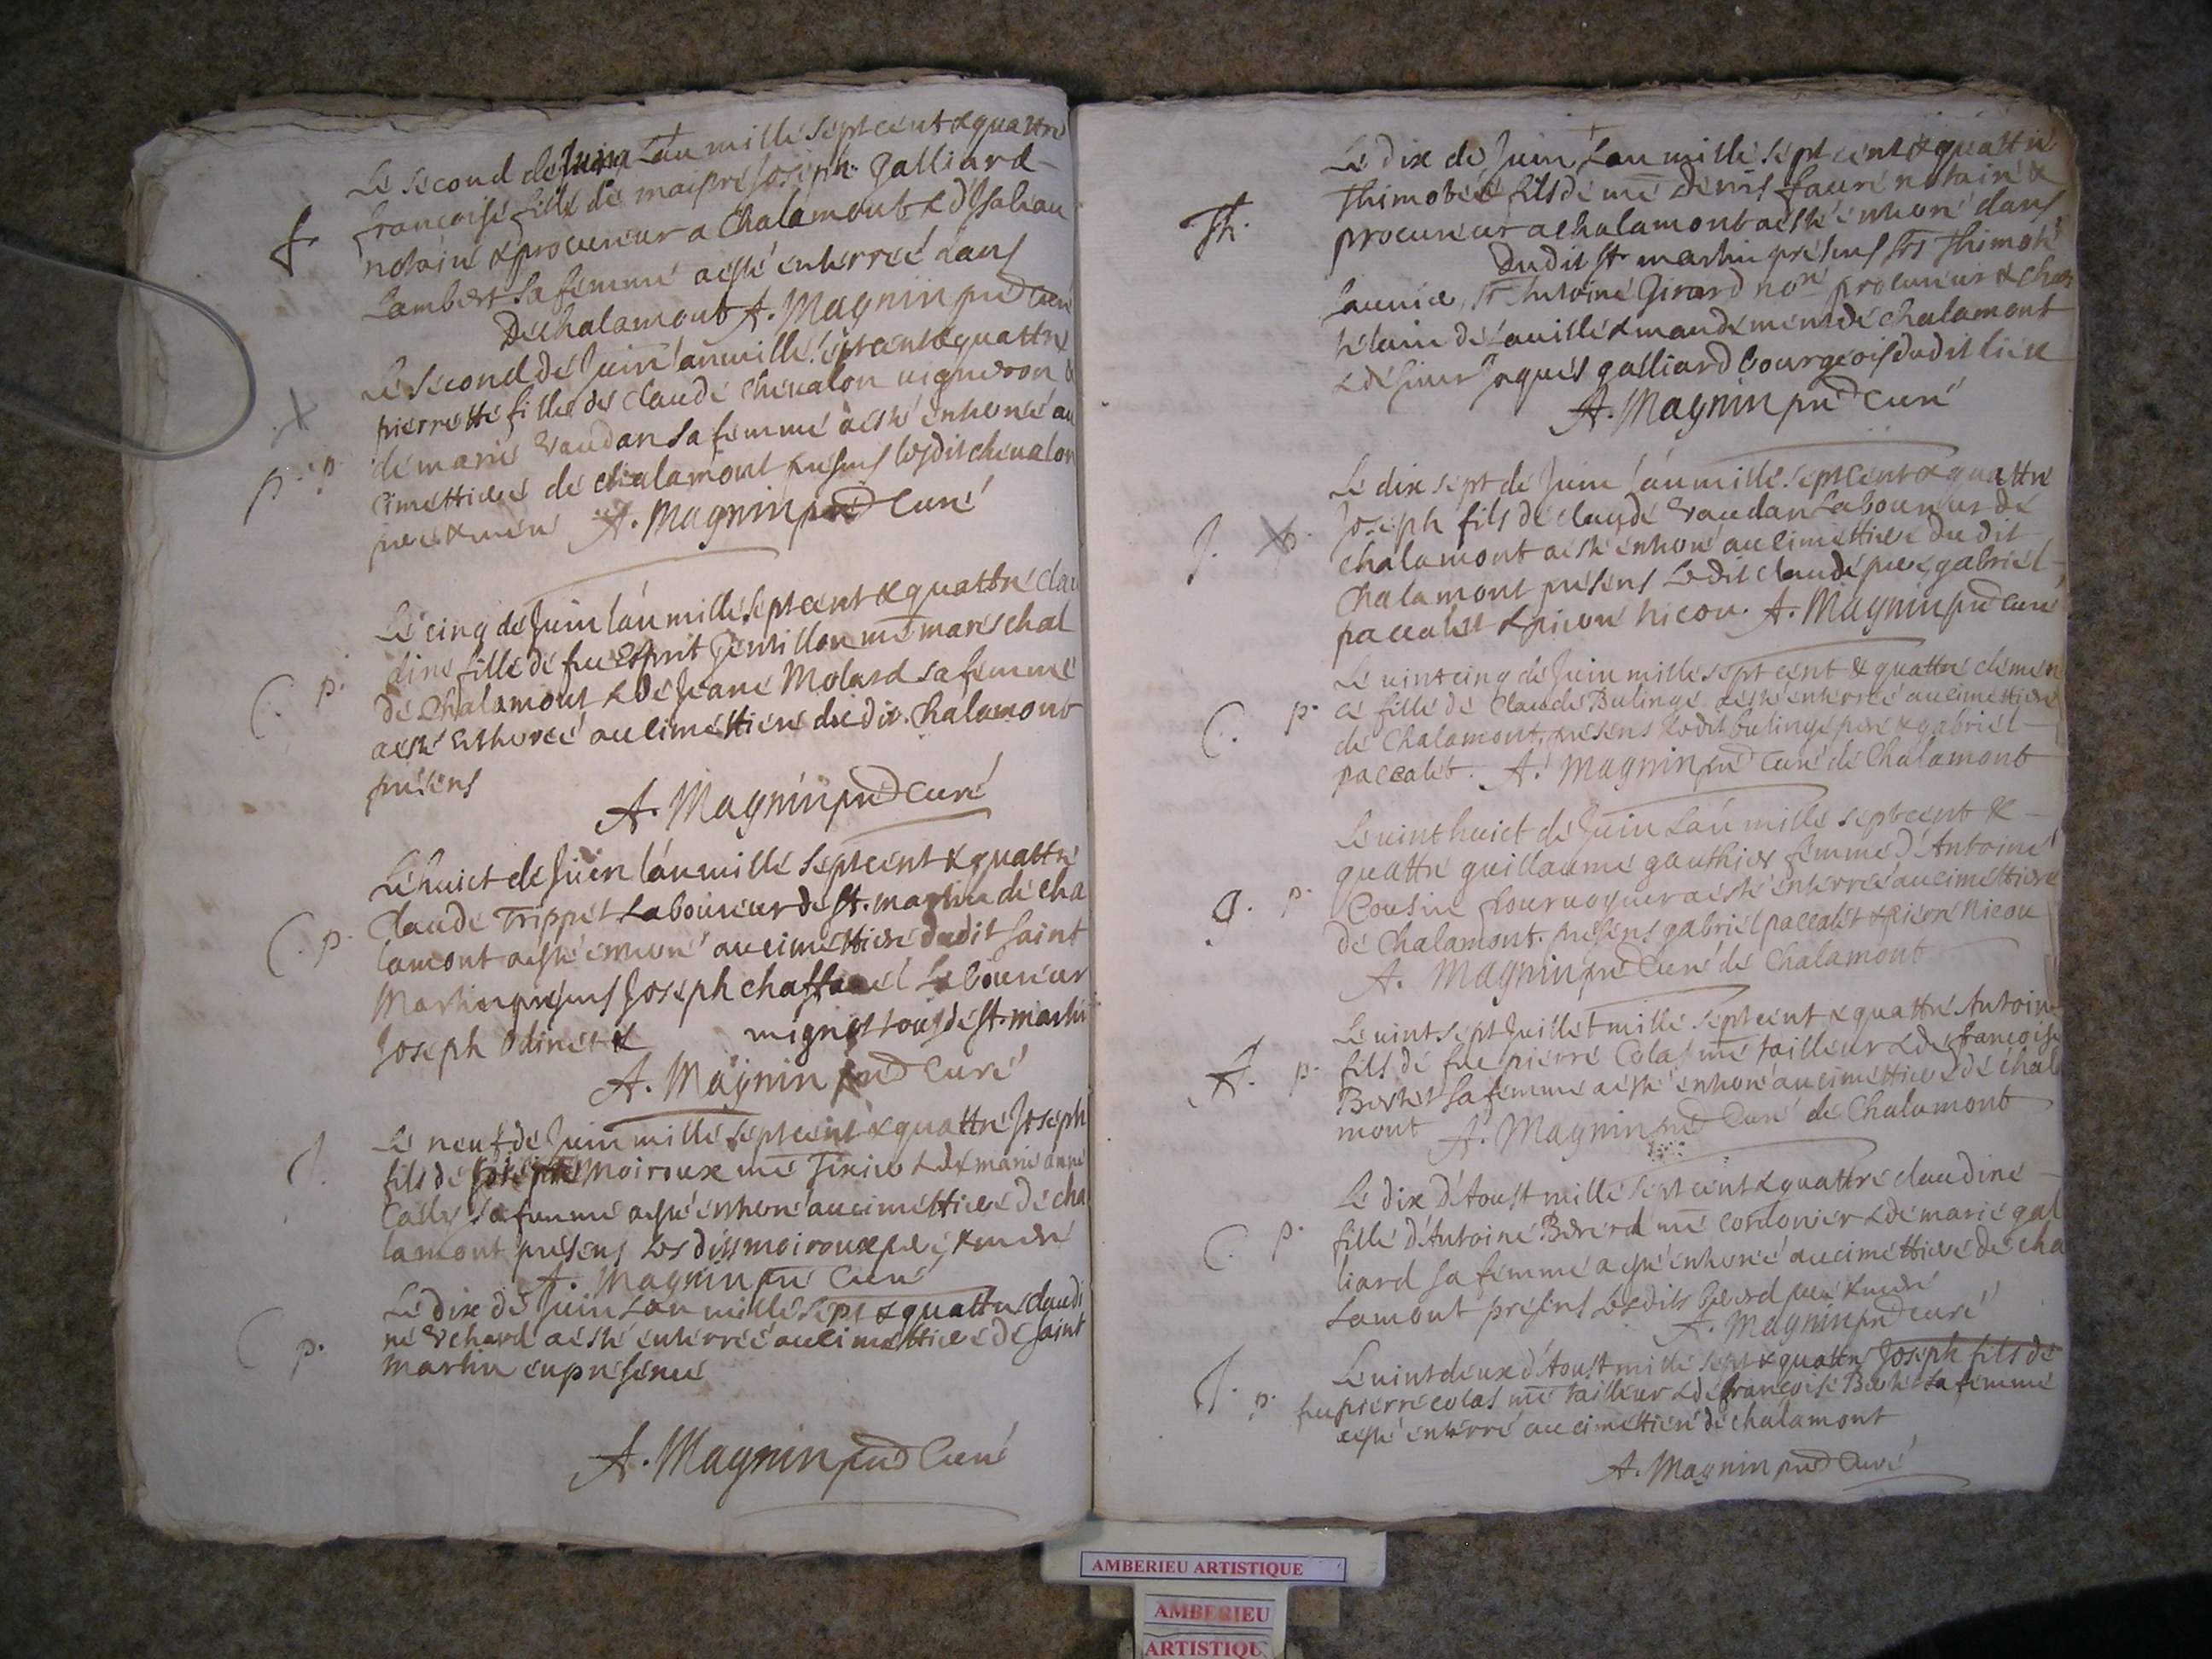 Le second de Juing L'an mille sept cent & quattre
f. francoise fille de maistre Joseph Jalliard
notaire & procureur a Chalamont & d'Isabeau
Lambert sa femme a esté enterreé dans
De chalamont A. Magnin pre Curé
Le second de Juin l'an mille sept cent & quattre
pierrette fille de Claude Chevalon vigneron &
p. p. de marie Vaudan sa femme a esté enterreé au
Cimettiere de chalamont presens lesdit chevalon
pere & mere A. Magnin pre Curé
Le cinq de Juin l'an mille sept cent & quattre clau
C. p. dine fille de feu Esprit Jentillon me mareschal
de Chalamont & de Jeane Molard sa femme
a esté enterreé au cimettiere du dit Chalamont
presens
A. Magnin pre Curé
Le huict de Juin l'an mille sept cent & quattre
Claude Trippet Laboureur de St. martin de cha
C. p. lamont a esté enterré au cimettiere dudit saint
Martin presens Joseph Laboureur
Joseph Odinet & mignot tous de St. martin
A. Magnin pre Curé
J. Le neuf de Juin mille sept cent & quattre Joseph
fils de Joseph Moiroux me & de marie anne
sa femme a esté enterré au cimettiere de cha
lamont presens Les dits moiroux pere & mere
A. Magnin pre Curé
Le dix de Juin L'an mille sept & quattre claudi
C p. ne a esté enterreé au cimettiere de saint
martin en presence
A. Magnin pre Curé
Le dix de Juin L'an mille sept cent & quattre
Th. Thimoteé fils de me Denis faure notaire &
procureur a chalamont a esté enterré dans
Dudit St. martin presens Srs Thimoté
Sr Antoine Girard nore procureur & chas
telain de La ville & mandement de chalamont
& de sieur Jaques galliard bourgeois dudit lieu
A. Magnin pre Curé
Le dix sept de Juin l'an mille sept cent & quattre
J. p. Joseph fils de claude Vaudan Laboureur de
chalamont a esté enterré au cimettiere du dit
Chalamont presens Ledit claude pere, gabriel
paccalet & pierre nicou. A. Magnin pre Curé
Le vint cinq de Juin mille sept cent & quattre clemen
C. p. ce fille de Claude Bulinge a esté enterreé au cimettiere
de Chalamont, presens Ledit bulinge pere & gabriel
paccalet. A. Magnin pre Curé de Chalamont
Le vint huict de Juin L'an mille sept cent &
quattre guillaume gauthier femme d'Antoine
G. p. Cousin a esté enterreé au cimettiere
de Chalamont. presens gabriel paccalet & Pierre Nicou
A. Magnin pre Curé de Chalamont
Le vint sept Juillet mille sept cent & quattre Antoine
A. p. fils de feu pierre Colas me tailleur & de francoise
Berthet sa femme a esté enterré au cimettiere de chala
mont A. Magnin pre Curé de Chalamont
Le dix d'Aoust mille sept cent & quattre claudine
C. p. fille d'Antoine Bererd me cordonier & de marie gal
liard sa femme a esté enterreé au cimettiere de cha
Lamont presens Les dits Bererd pere & mere
A. Magnin pre curé
Le vint deux d'Aoust mille sept & quattre Joseph fils de
J. p. feu pierre colas me tailleur & de francoise Berthet sa femme
a esté enterré au cimettiere de chalamont
A. Magnin pre Curé
AMBERIEU ARTISTIQUE
AMBERIEU
ARTISTIQU